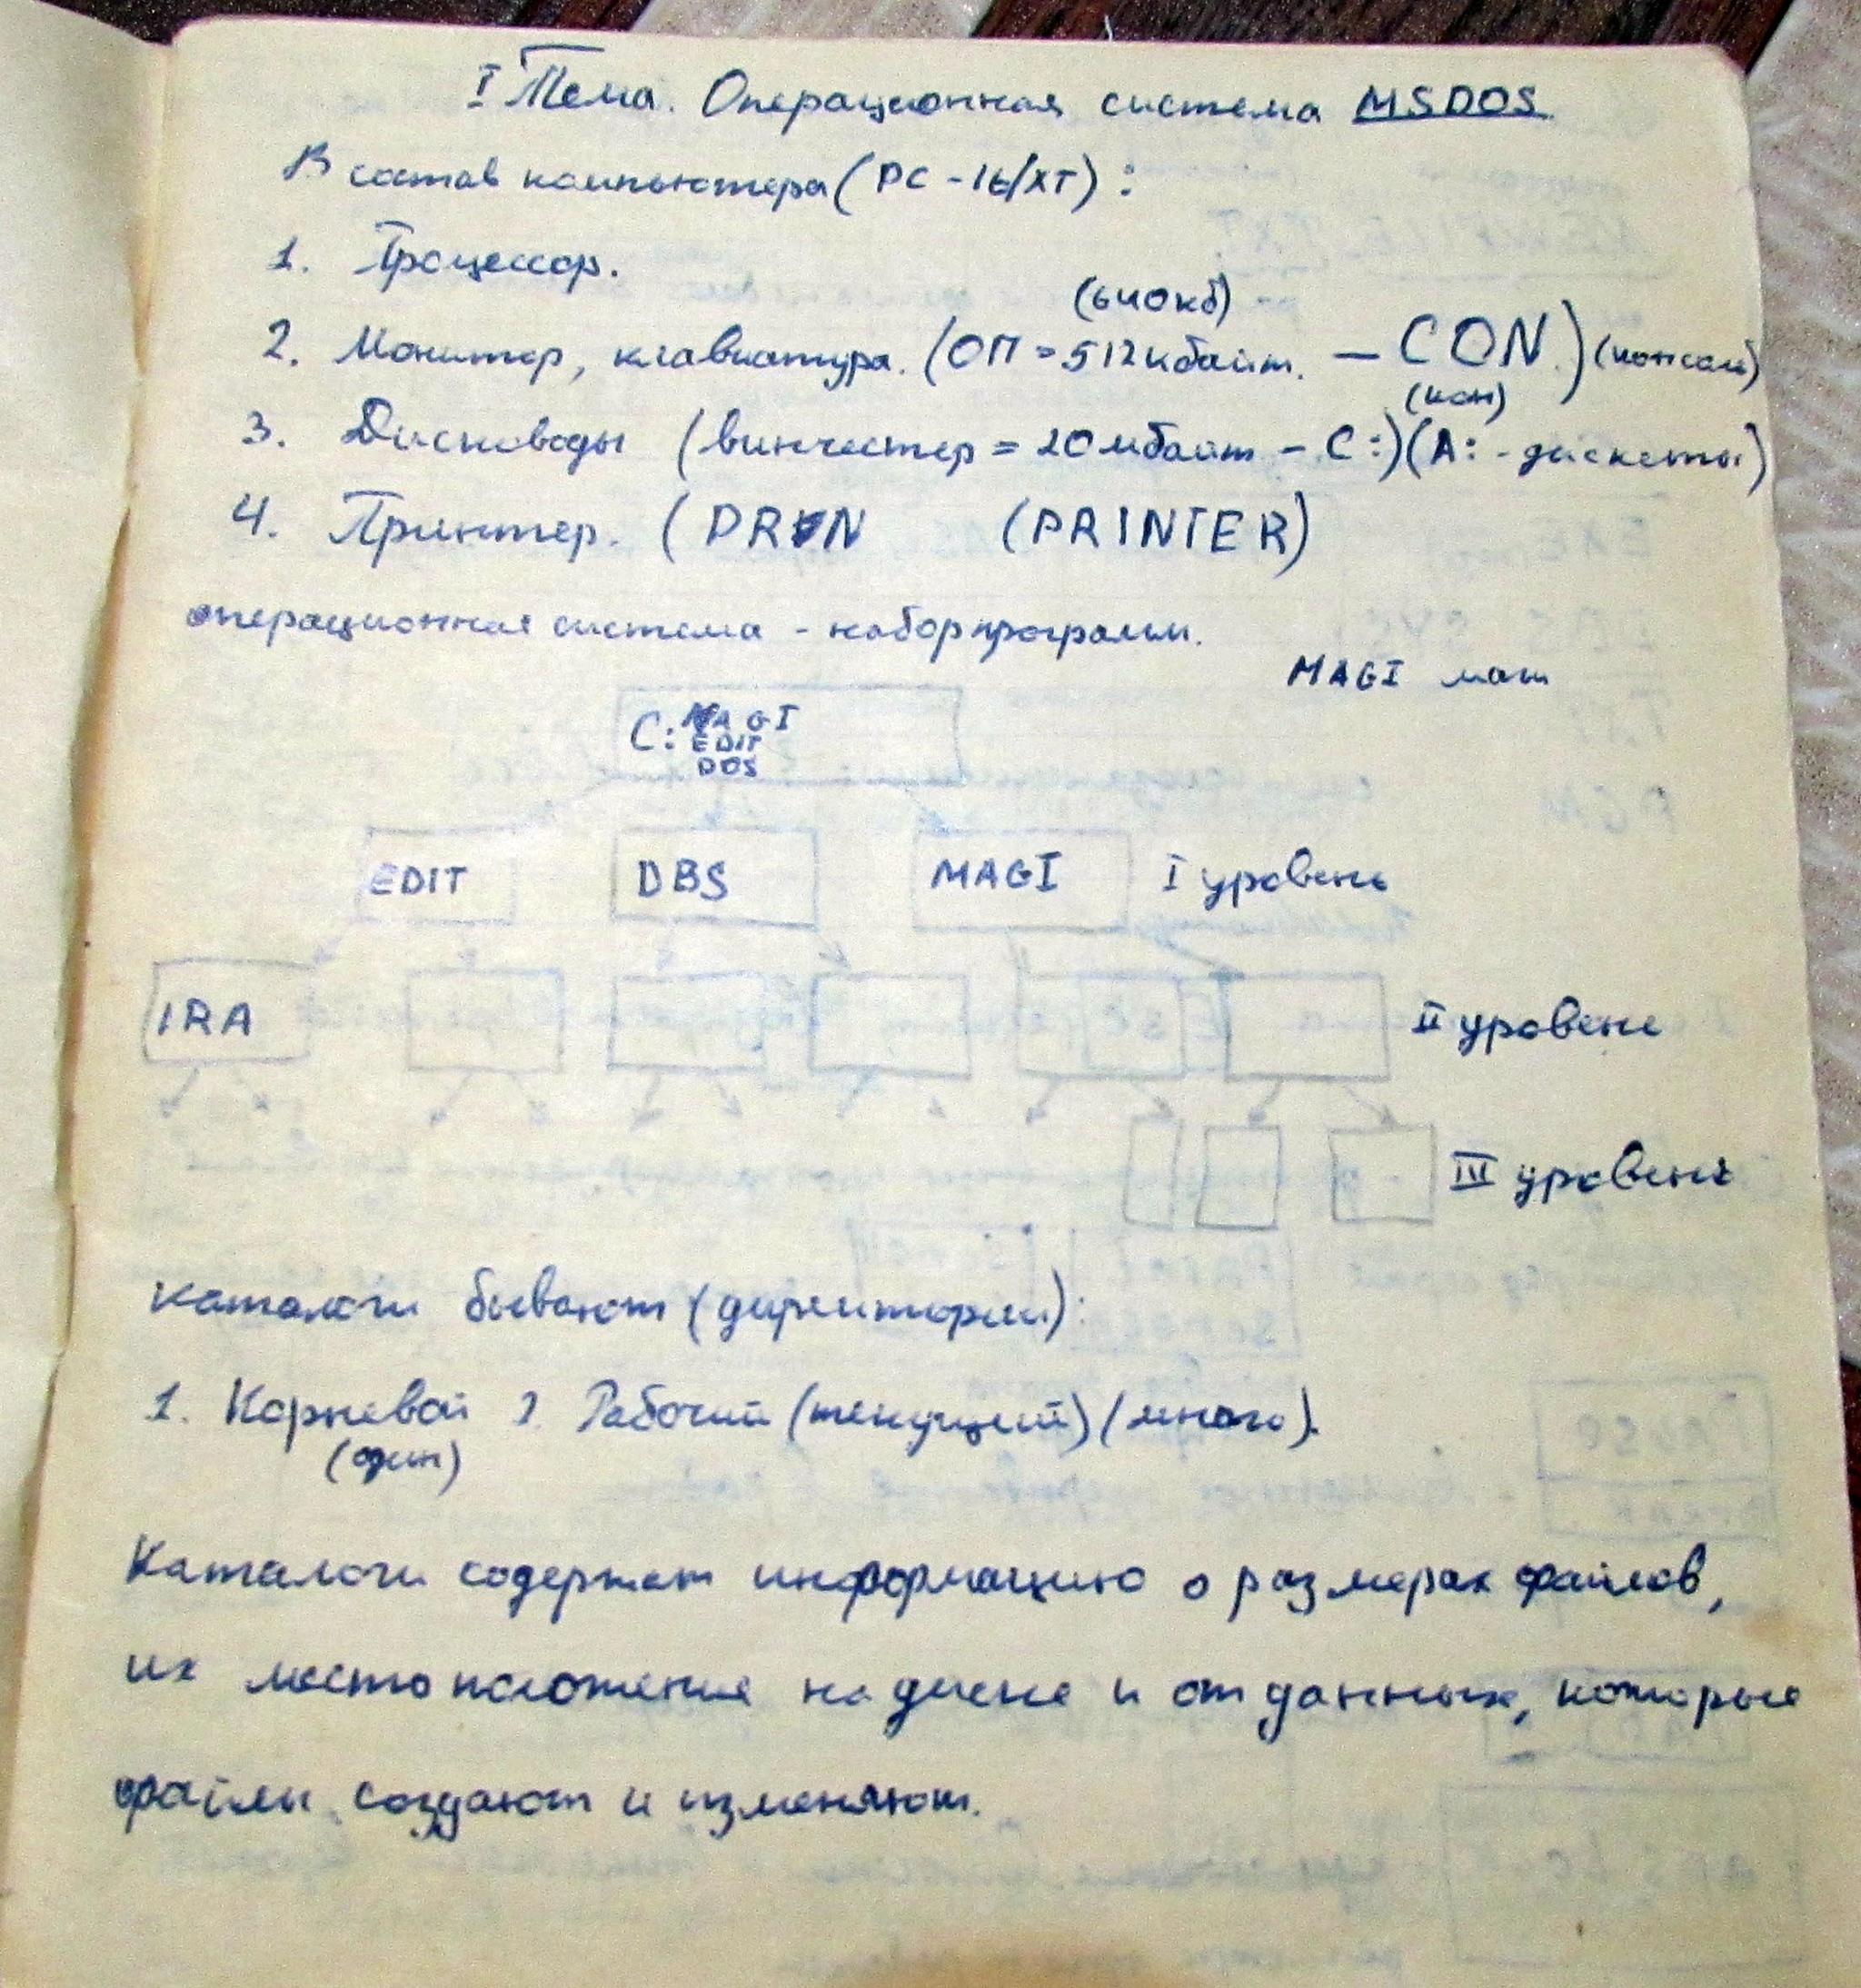 I Тема. Операционная система MSDOS.
В состав компьютера (PC-16/XT):
1. Процессор.
(640кб)
2. Монитор, клавиатура. (ОП = 512кбайт. — CON.) (консоль)
(кон)
3. Дисководы (винчестер = 20мбайт - C:) (A: - дискеты)
4. Принтер. (PRN (PRINTER)
операционная система - набор программ.
MAGI маг
C: MAGI
EDIT
DOS
EDIT DBS MAGI I уровень
IRA II уровень
III уровень
каталоги бывают (директории):
1. Корневой 2. Рабочий (текущий) (много).
(один)
Каталоги содержат информацию о размерах файлов,
их местоположение на диске и от данных, которые
файлы создают и изменяют.